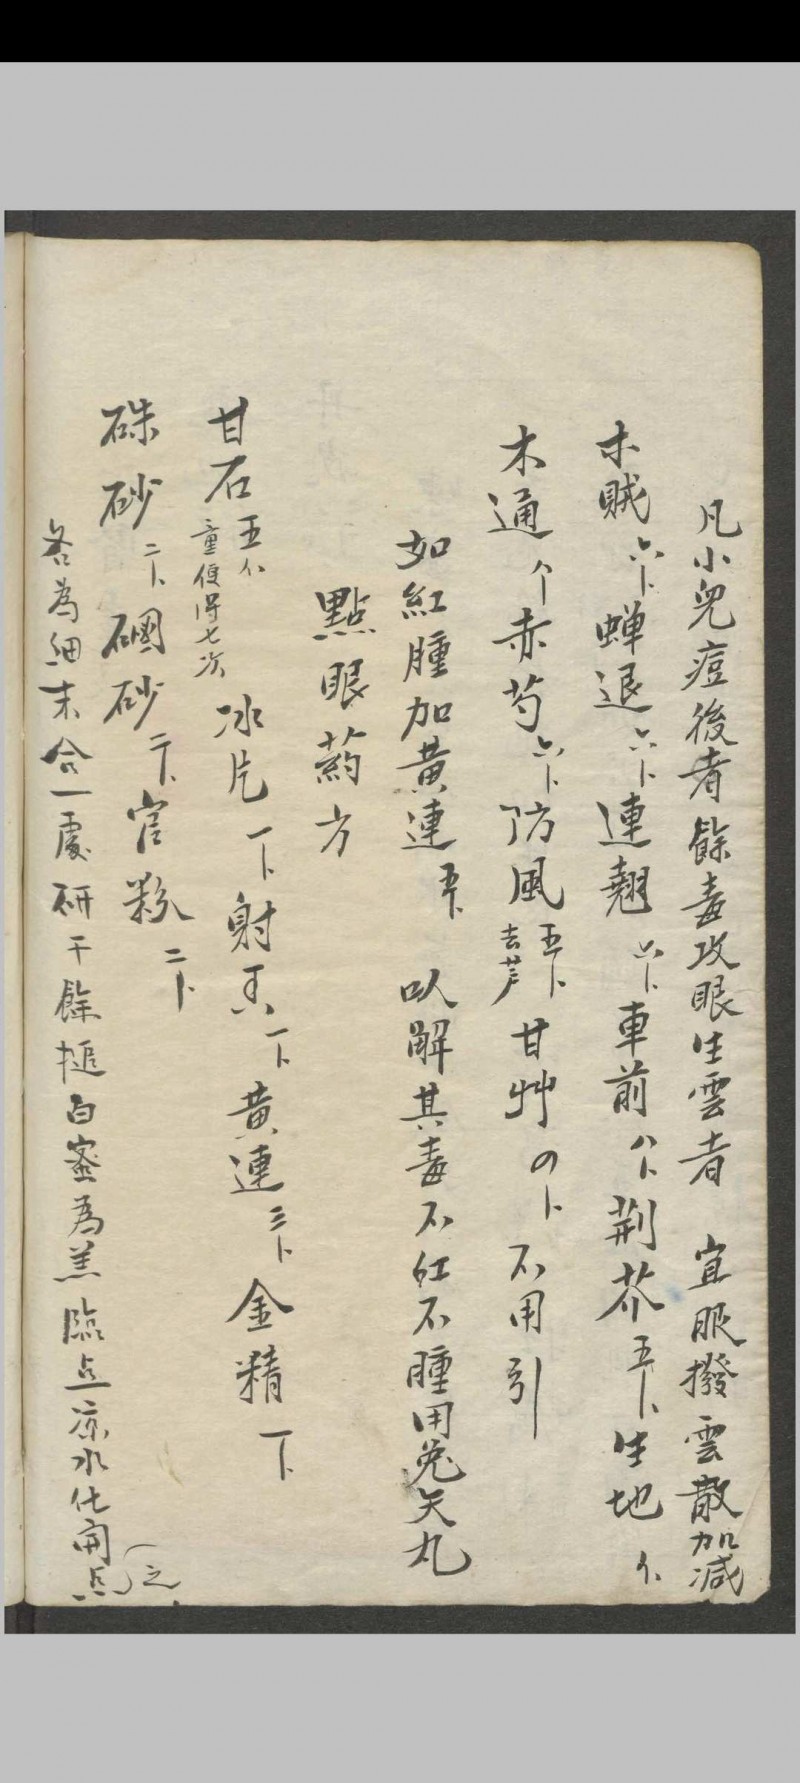 凡小兒痘後者餘毒攻眼生雲者 宜服撥雲散加減
木賊六卜蟬退六卜連翹六卜車前八卜荆芥五卜生地
木通个赤芍六卜防風五卜去芦甘艸〇卜不用引
如紅腫加黄連五卜 以解其毒不紅不腫用兔矢丸
點眼葯方
甘石五 童便淬七次 冰片一卜射香一卜黄連三卜金精一卜
硃砂二卜硼砂二卜官粉二卜
各為細末合一處研千餘搥白蜜為羔臨点凉水化開点之